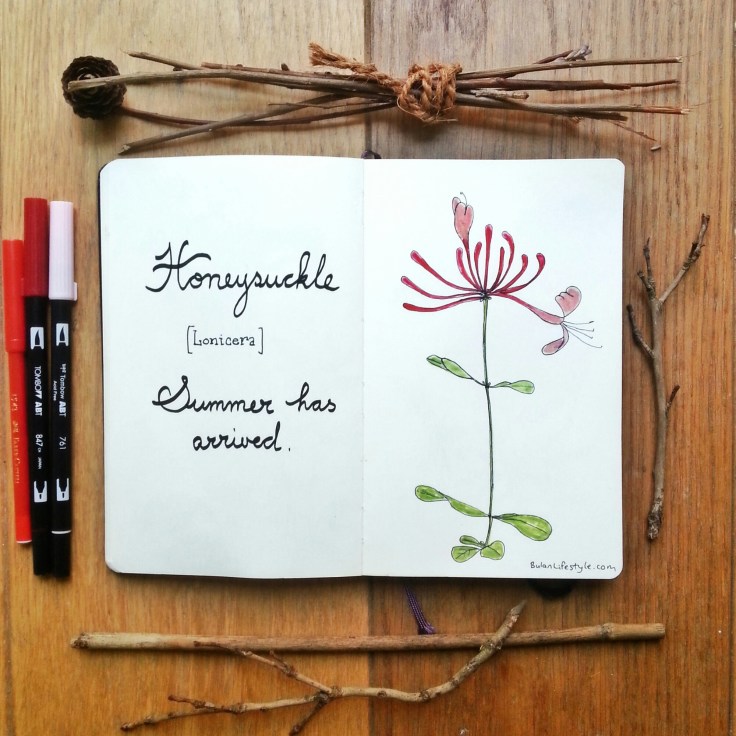 Honeysuckle
[Lonicera]
Summer has
arrived.
BulanLifestyle.com
TOMBOW ABT
847
Tombow ABT
761